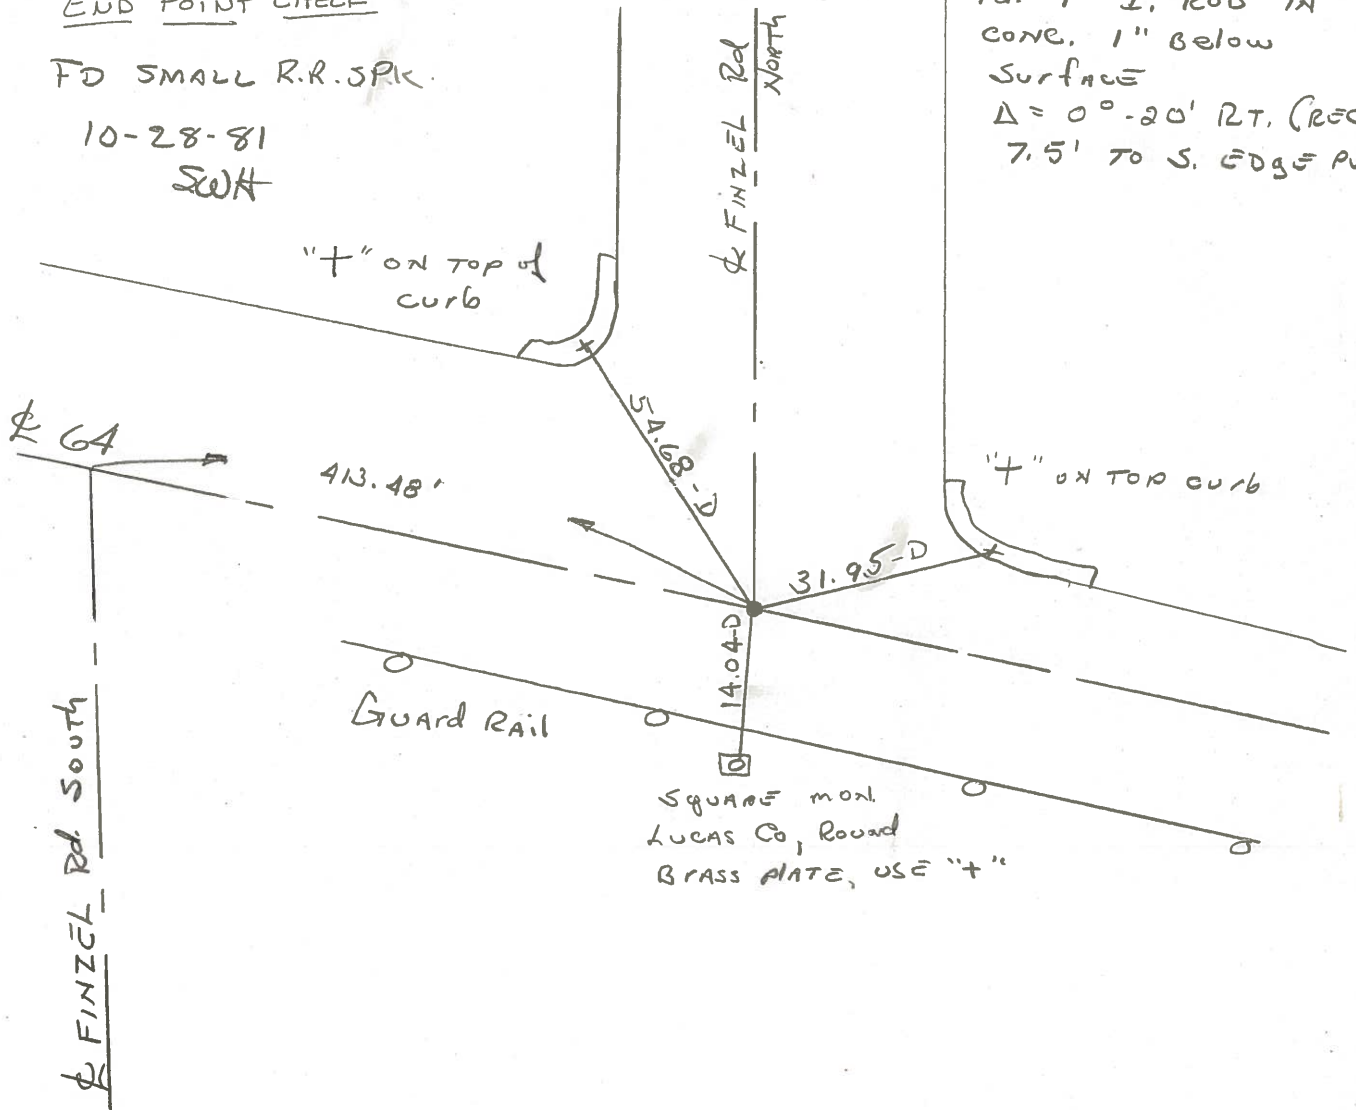 END POINT CHECK
FD SMALL R.R. SPK.
10-28-81
SWH
I. ROD IN
CONC. 1" Below
Surface
Δ = 0°-20' RT. (REC
7.5' TO S. EDGE
℄ FINZEL Rd
NORTH
"+" ON TOP of
curb
℄ 64
413.48'
54.68-D
"+" ON TOP curb
31.95-D
14.04-D
GUARD RAIL
SQUARE MON.
LUCAS Co, Round
BRASS PLATE, USE "+"
℄ FINZEL Rd. SOUTH